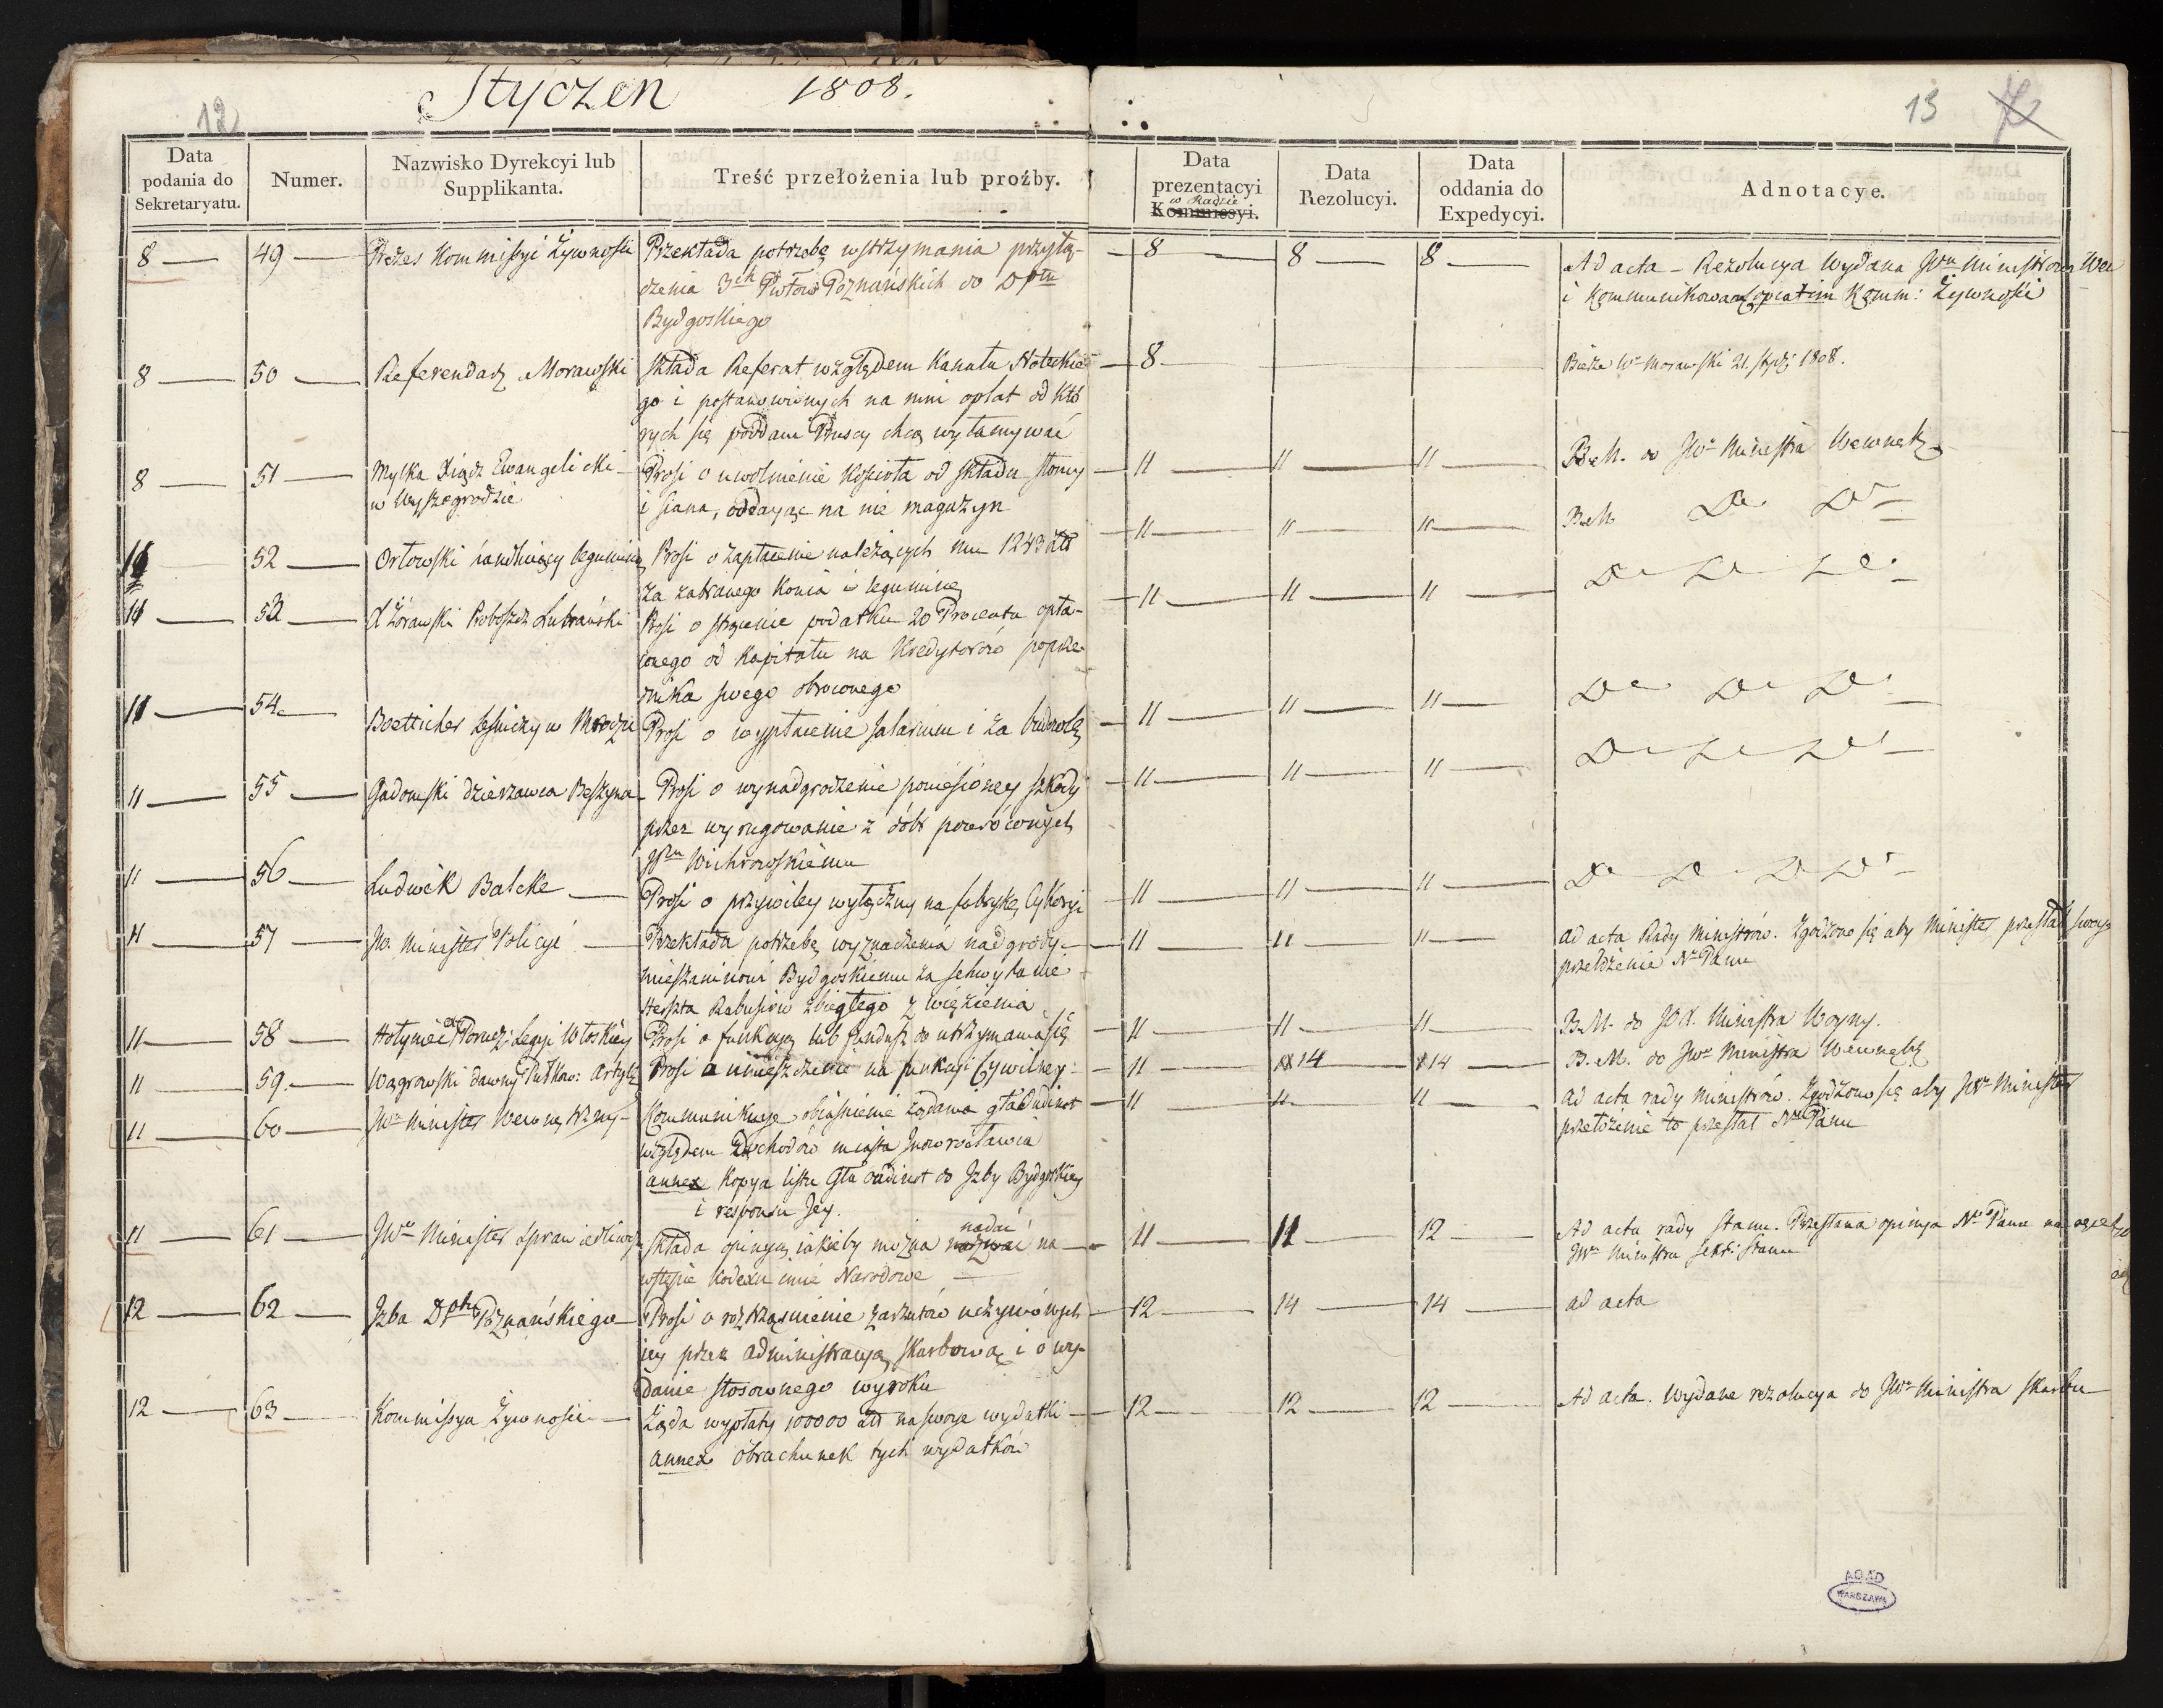 Styczen 1808.
12
13
Data podania do Sekretaryatu.
Numer.
Nazwisko Dyrekcyi lub Supplikanta.
Treść przełożenia lub prożby.
Data prezentacyi Kommissyi.
w Radzie
Data Rezolucyi.
Data oddania do Expedycyi.
Adnotacye.
8 49 Prezes Kommissyi Żywności Przekłada potrzebę wstrzymania przyłą-
dzenia 3ch Pwtow Poznańskich do Dptu
Bydgoskiego
8 8 8 Ad acta – Rezolucya wydana JWu Ministrom
i kommunikowana copiatim Komm: Żywności
8 50 Referendarz Morawski Składa Referat względem Kanału Noteckie
go i postanowionych na nim opłat od któ
rych się poddani Pruscy chcą wyłamywać
8 Bierze Wn Morawski 21. stycz: 1808.
8 51 Mylka Xiądz Ewangelicki Prosi o uwolnienie Kościoła od składu słomy
w Wyszogrodzie i siana, oddaiąc na nie magazyn
11 11 11 B.M. do JWo Ministra Wewnętrz
11 52 Orłowski handluiący leguminą Prosi o zapłacenie należących mu 1243 Złł
za zabranego konia i leguminę
11 11 11 B.M. Do Do
11 53 X Żórawski Proboszcz Lubrański Prosi o strącenie podatku 20 Procentu opła-
conego od kapitału na kredytorów poprze-
dnika swego obroconego
11 11 11 Do Do Do
11 54 Boetticher Leśniczy w Mroczu Prosi o wypłacenie salarium i za budowlę
11 11 11 Do Do Do
11 55 Gadomski dzierzawca Beszyna Prosi o wynadgrodzenie poniesioney szkody
przez wyrugowanie z dóbr powróconych
Wmu Wichrowskiemu
11 11 11 Do Do Do
11 56 Ludwik Balcke Prosi o przywiley wyłączny na fabrykę Cykoryi
11 11 11 Do Do Do Do
11 57 JW. Minister Policyi Przekłada potrzebę wyznaczenia nadgrody
mieszaninowi Bydgoskiemu za schwytanie
Herszta Rabusiów zbiegłego z więzienia
11 11 11 ad acta Rady Ministrów. Zgodzono się aby Minister przesłał swoje
przełożenie N. Panu
11 58 Hołyniec Porucz: Legii Włoskiey Prosi o funkcyą lub fundusz do utrzymania się
11 11 11 B.M. do JOX. Ministra Woyny.
11 59. Wągrowski dawny Pułkow: Artyl: Prosi o umieszczenie na funkcyi Cywilney
11 14 14 B.M. do JWo Ministra Wewnętrz
11 60 JWn Minister Wewnętrzny Kommunikuje obiaśnienie żądania Gła Oudinot
względem dochodów miasta Inowrocławia
annex kopya listu Gła Oudinot do Izby Bydgoskiey
i responsu Jey.
11 11 11 ad acta rady Ministrów. Zgodzono się aby JWn Minister
przełożenie to przesłał N. Panu
11 61 JWn Minister Sprawiedliwoś: Składa opinyą iakieby można nazwać na
nadać
wstępie kodexu imie Narodowe
11 11 12 Ad acta rady stanu. Przesłana opinya N. Panu na ręce
JWo Ministra sekr: Stanu
12 62 Izba Dptu Poznańskiego Prosi o roztrząśnienie zarzutów uczynionych
iey przez administracyą skarbową i o wy-
danie stosownego wyroku
12 14 14 ad acta
12 63 Kommissya Żywności Żąda wypłaty 100000 Złł na swoje wydatki
annex obrachunek tych wydatków
12 12 12 Ad acta. Wydana rezolucya do JWo Ministra Skarbu
AGAD
WARSZAWA